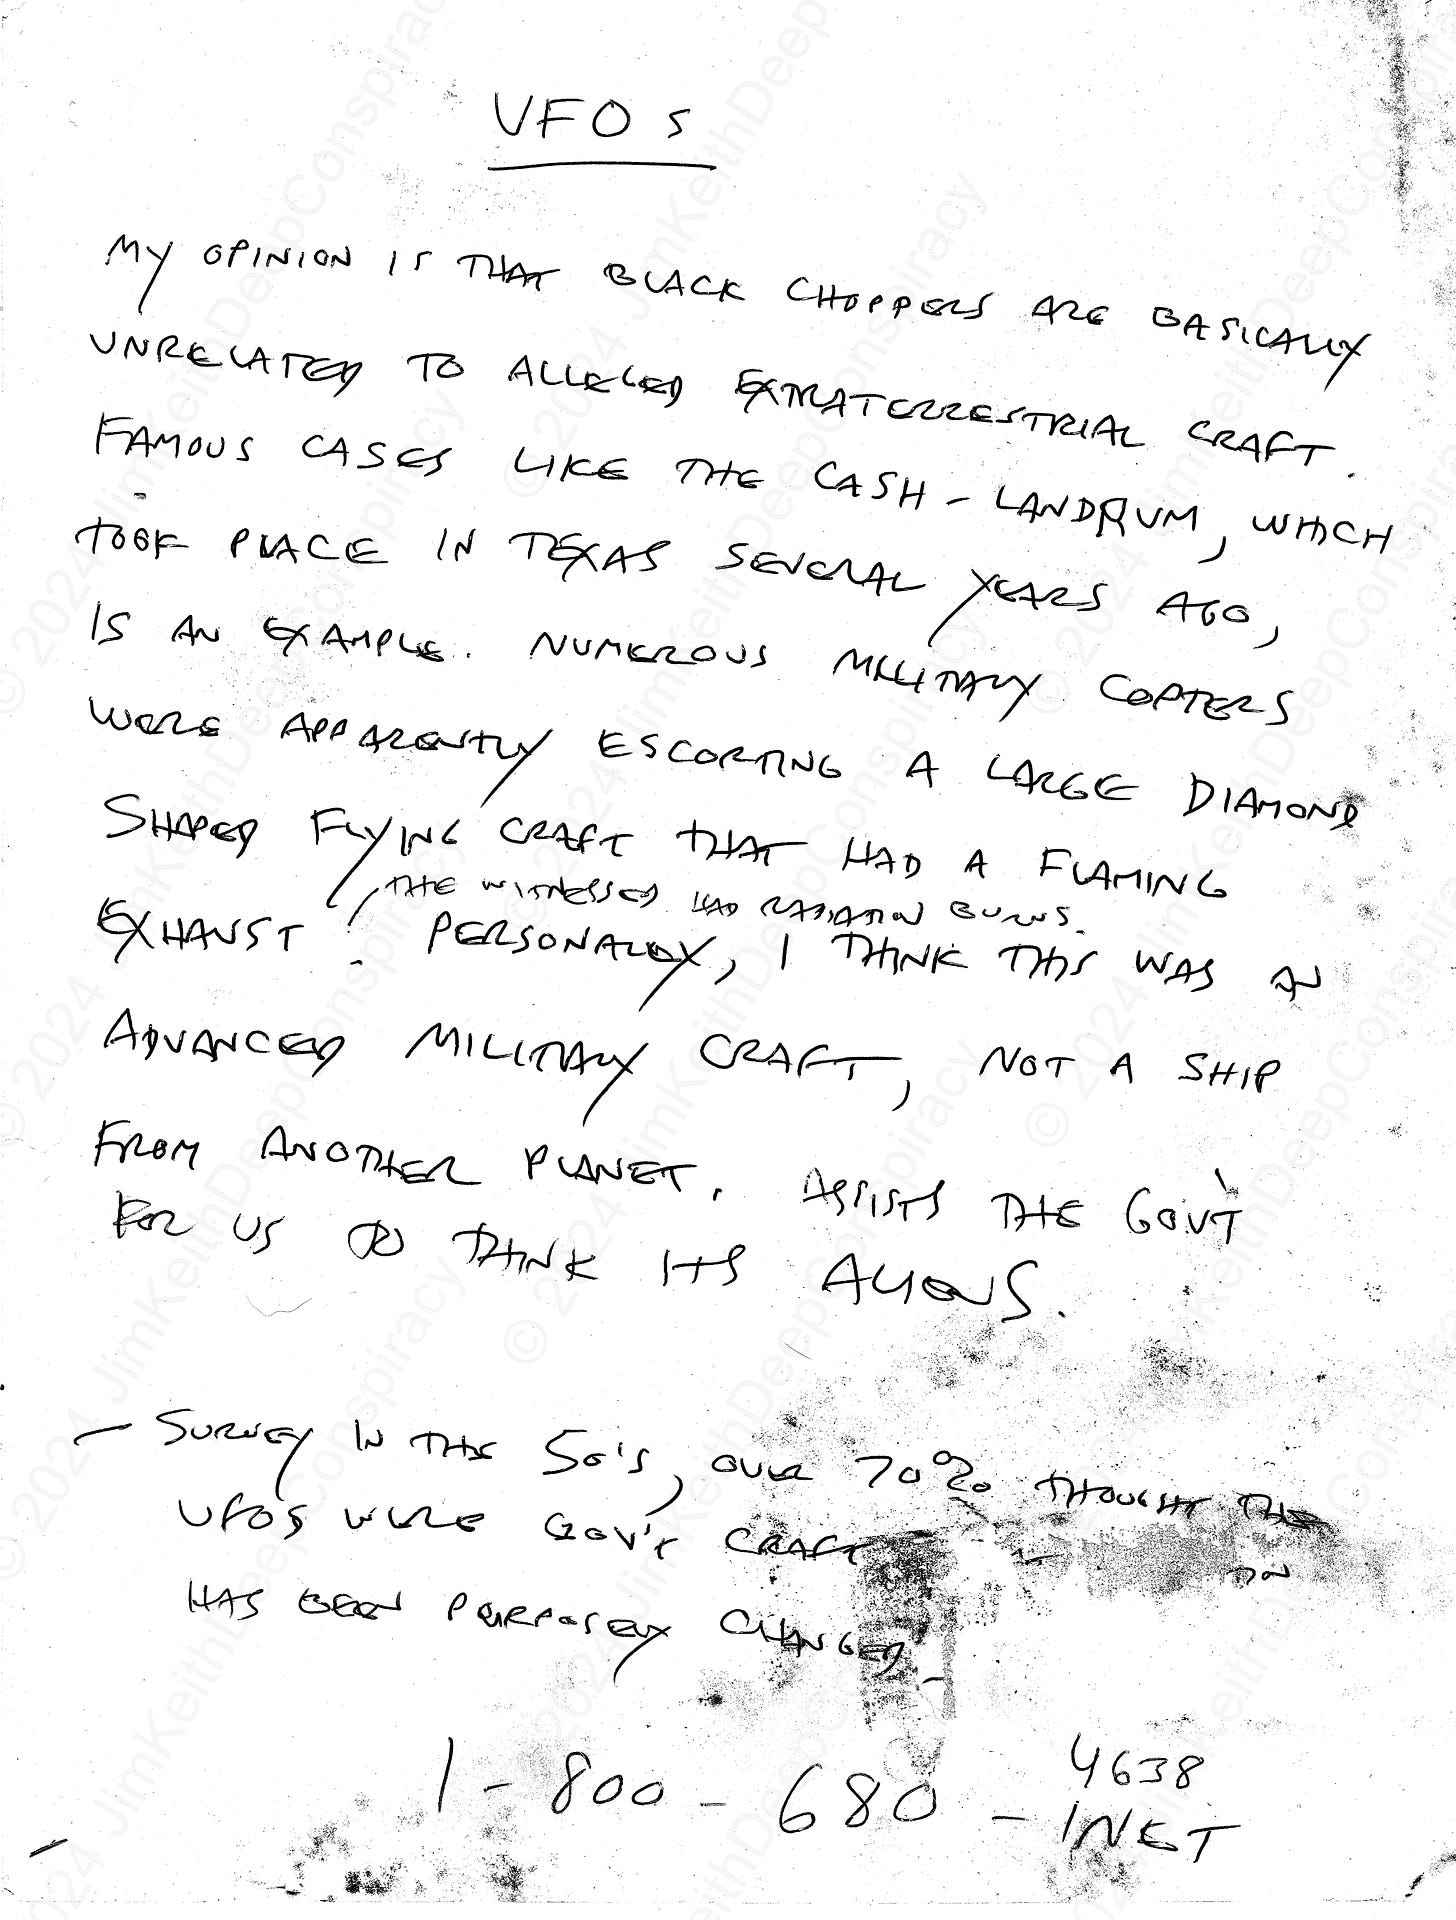 UFOs
MY OPINION IS THAT BLACK CHOPPERS ARE BASICALLY
UNRELATED TO ALLEGED EXTRATERRESTRIAL CRAFT.
FAMOUS CASES LIKE THE CASH-LANDRUM, WHICH
TOOK PLACE IN TEXAS SEVERAL YEARS AGO,
IS AN EXAMPLE. NUMEROUS MILITARY COPTERS
WERE APPARENTLY ESCORTING A LARGE DIAMOND
SHAPED FLYING CRAFT THAT HAD A FLAMING
THE WITNESSES HAD RADIATION BURNS.
EXHAUST. PERSONALLY, I THINK THIS WAS AN
ADVANCED MILITARY CRAFT, NOT A SHIP
FROM ANOTHER PLANET. ASSISTS THE GOV'T
FOR US TO THINK ITS ALIENS.
- SURVEY IN THE 50's, OVER 70% THOUGHT THE
UFOS WERE GOV'T CRAFT
HAS BEEN PURPOSELY CHANGED
1-800-680-INET
4638
© 2024 JimKeithDeepConspiracy